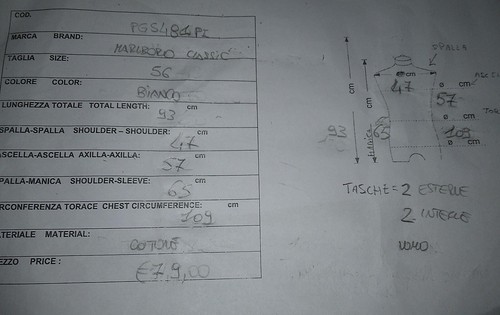 COD.
PGS481PI
MARCA BRAND:
MARLBORO CLASSIC
TAGLIA SIZE:
56
COLORE COLOR:
BIANCO
LUNGHEZZA TOTALE TOTAL LENGTH: cm
93
SPALLA-SPALLA SHOULDER – SHOULDER: cm
47
ASCELLA-ASCELLA AXILLA-AXILLA: cm
57
PALLA-MANICA SHOULDER-SLEEVE: cm
65
RCONFERENZA TORACE CHEST CIRCUMFERENCE: cm
109
ATERIALE MATERIAL:
COTONE
EZZO PRICE:
€79,00
SPALLA
cm
cm
cm
47
cm
57
cm
93
65
MANICA
109
cm
TASCHE = 2 ESTERNE
2 INTERNE
UOMO